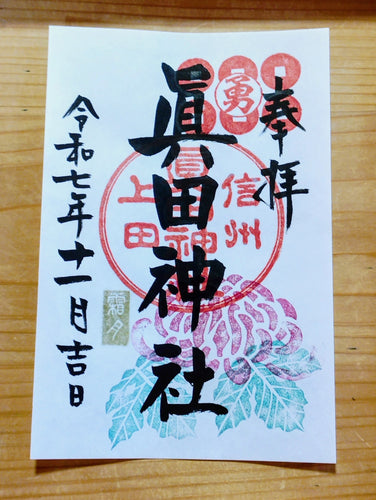 奉拝
勇
眞田神社
信州
上田
眞田神社
令和七年十一月吉日
霜月